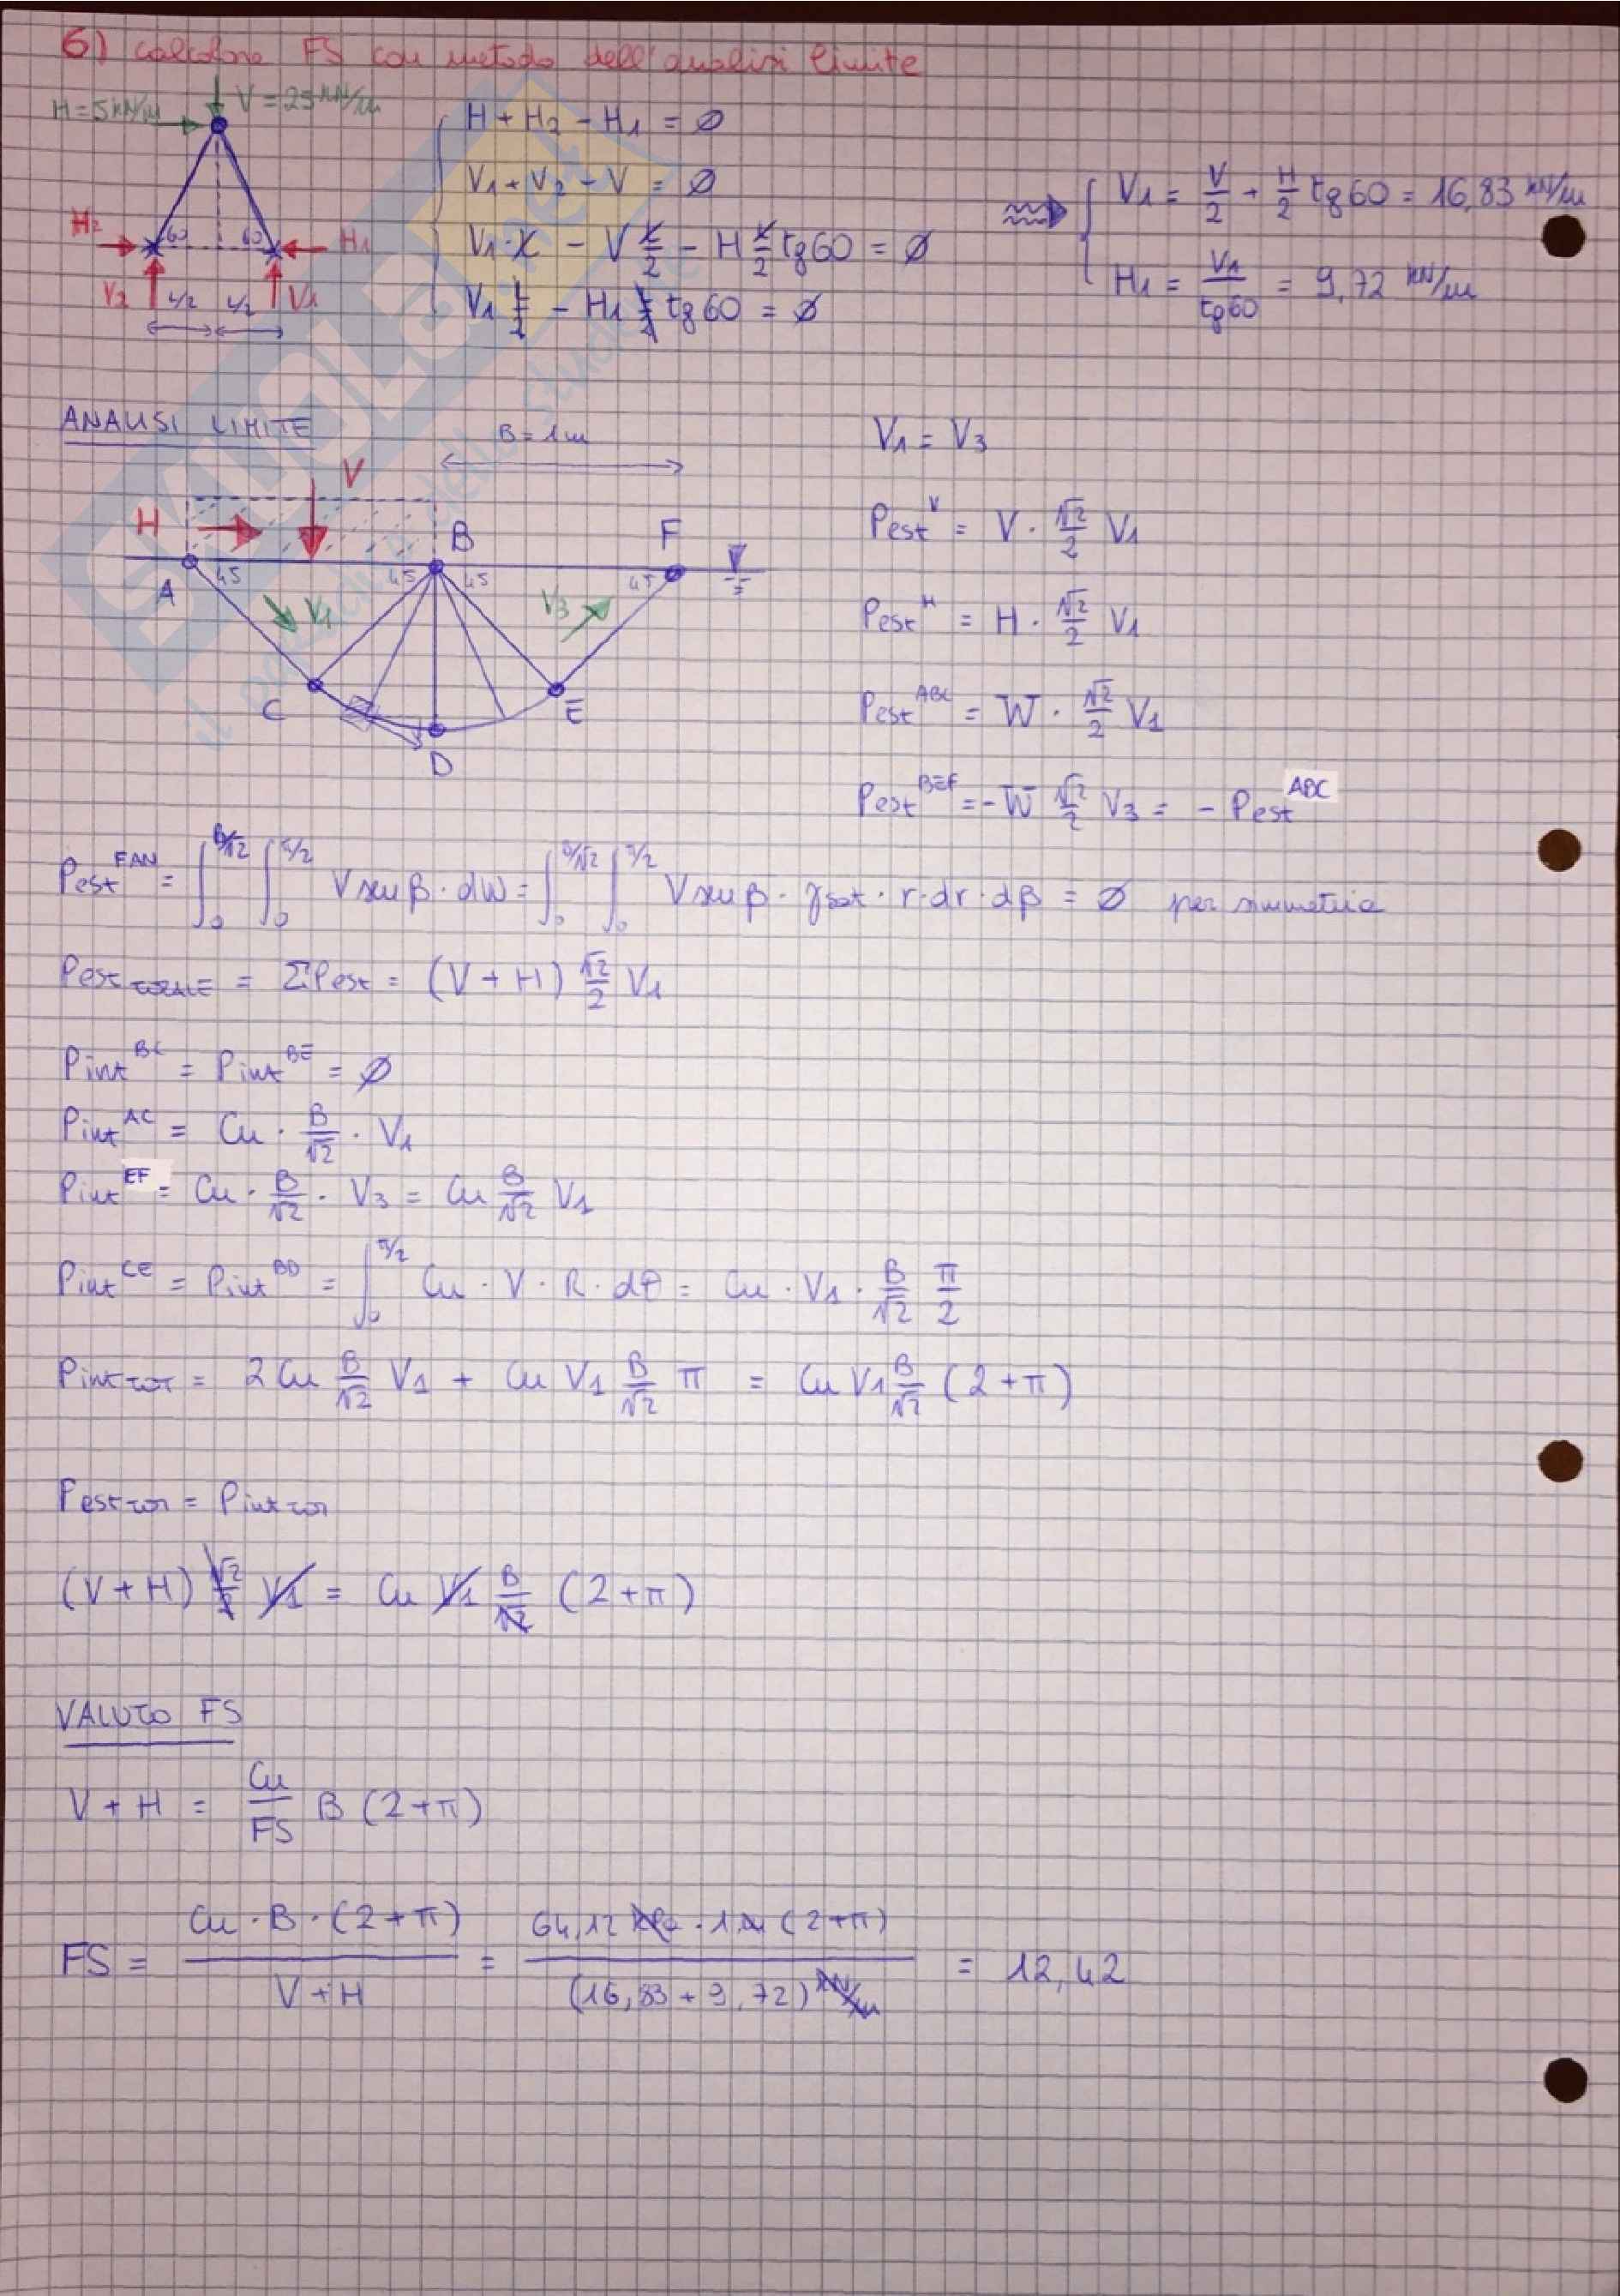 6) calcolare FS con metodo dell'analisi limite
H = 5 kN/m V = 25 kN/m
H + H2 - H1 = ∅
V1 + V2 - V = ∅
V1 · x - V x/2 - H x/2 tg60 = ∅
V1 L/2 - H1 L/2 tg60 = ∅
V1 = V/2 + H/2 tg60 = 16,83 kN/m
H1 = V1/tg60 = 9,72 kN/m
H2 60 60 H1
V2 L/2 L/2 V1
ANALISI LIMITE
B = 1m
V1 = V3
V
H
B F
A 45 45 45 45
V1 V3
C E
D
Pest^V = V · √2/2 V1
Pest^H = H · √2/2 V1
Pest^ABC = W · √2/2 V1
Pest^BEF = - W √2/2 V3 = - Pest^ABC
Pest^FAN = ∫0^B/√2 ∫0^π/2 V sen β · dW = ∫0^B/√2 ∫0^π/2 V sen β · γsat · r · dr · dβ = ∅ per simmetria
Pest TOTALE = ΣPest = (V + H) √2/2 V1
Pint^BC = Pint^BE = ∅
Pint^AC = Cu · B/√2 · V1
Pint^EF = Cu · B/√2 · V3 = Cu B/√2 V1
Pint^CE = Pint^BD = ∫0^π/2 Cu · V · R · dθ = Cu · V1 · B/√2 π/2
Pint TOT = 2 Cu B/√2 V1 + Cu V1 B/√2 π = Cu V1 B/√2 (2 + π)
Pest TOT = Pint TOT
(V + H) √2/2 V1 = Cu V1 B/√2 (2 + π)
VALUTO FS
V + H = Cu/FS B (2 + π)
FS = Cu · B · (2 + π) / V + H = 64,12 kPa · 1 m (2 + π) / (16,83 + 9,72) kN/m = 12,42